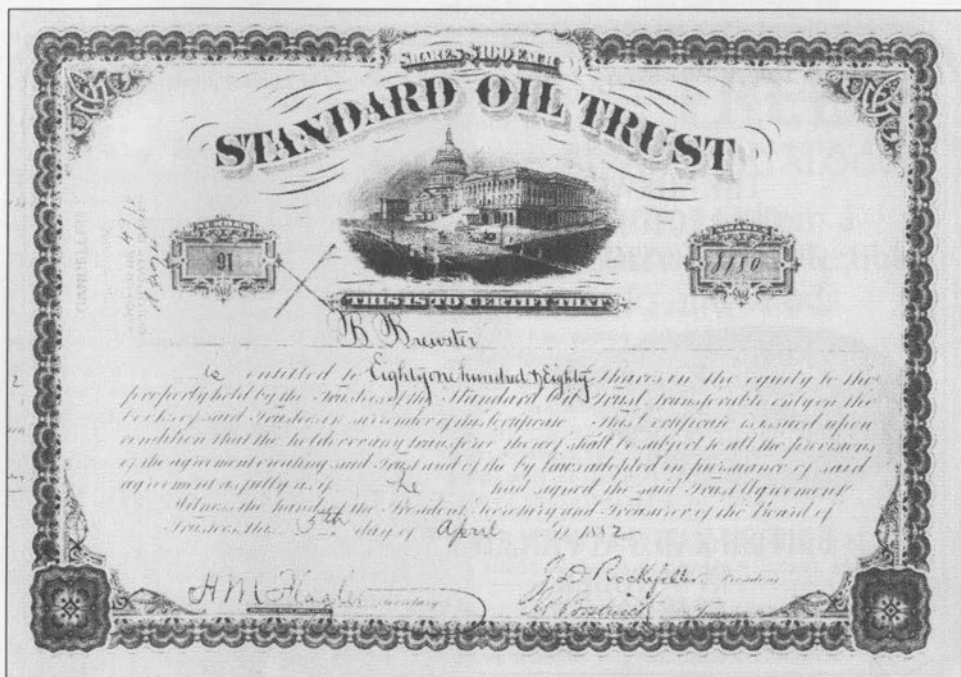 SHARES $100 EACH
STANDARD OIL TRUST
16
8180
THIS IS TO CERTIFY THAT
B Brewster
is entitled to Eighty one hundred & Eighty shares in the equity to the
property held by the Trustees of the Standard Oil Trust, transferable only on the
books of said Trustees on surrender of this Certificate. This Certificate is issued upon
condition that the holder or any transferee thereof shall be subject to all the provisions
of the agreement creating said Trust and of the by laws adopted in pursuance of said
agreement as fully as if he had signed the said Trust Agreement
Witness the hands of the President, Secretary and Treasurer of the Board of
Trustees this 5th day of April 1882
J D Rockefeller President
H M Flagler Secretary
Treasurer